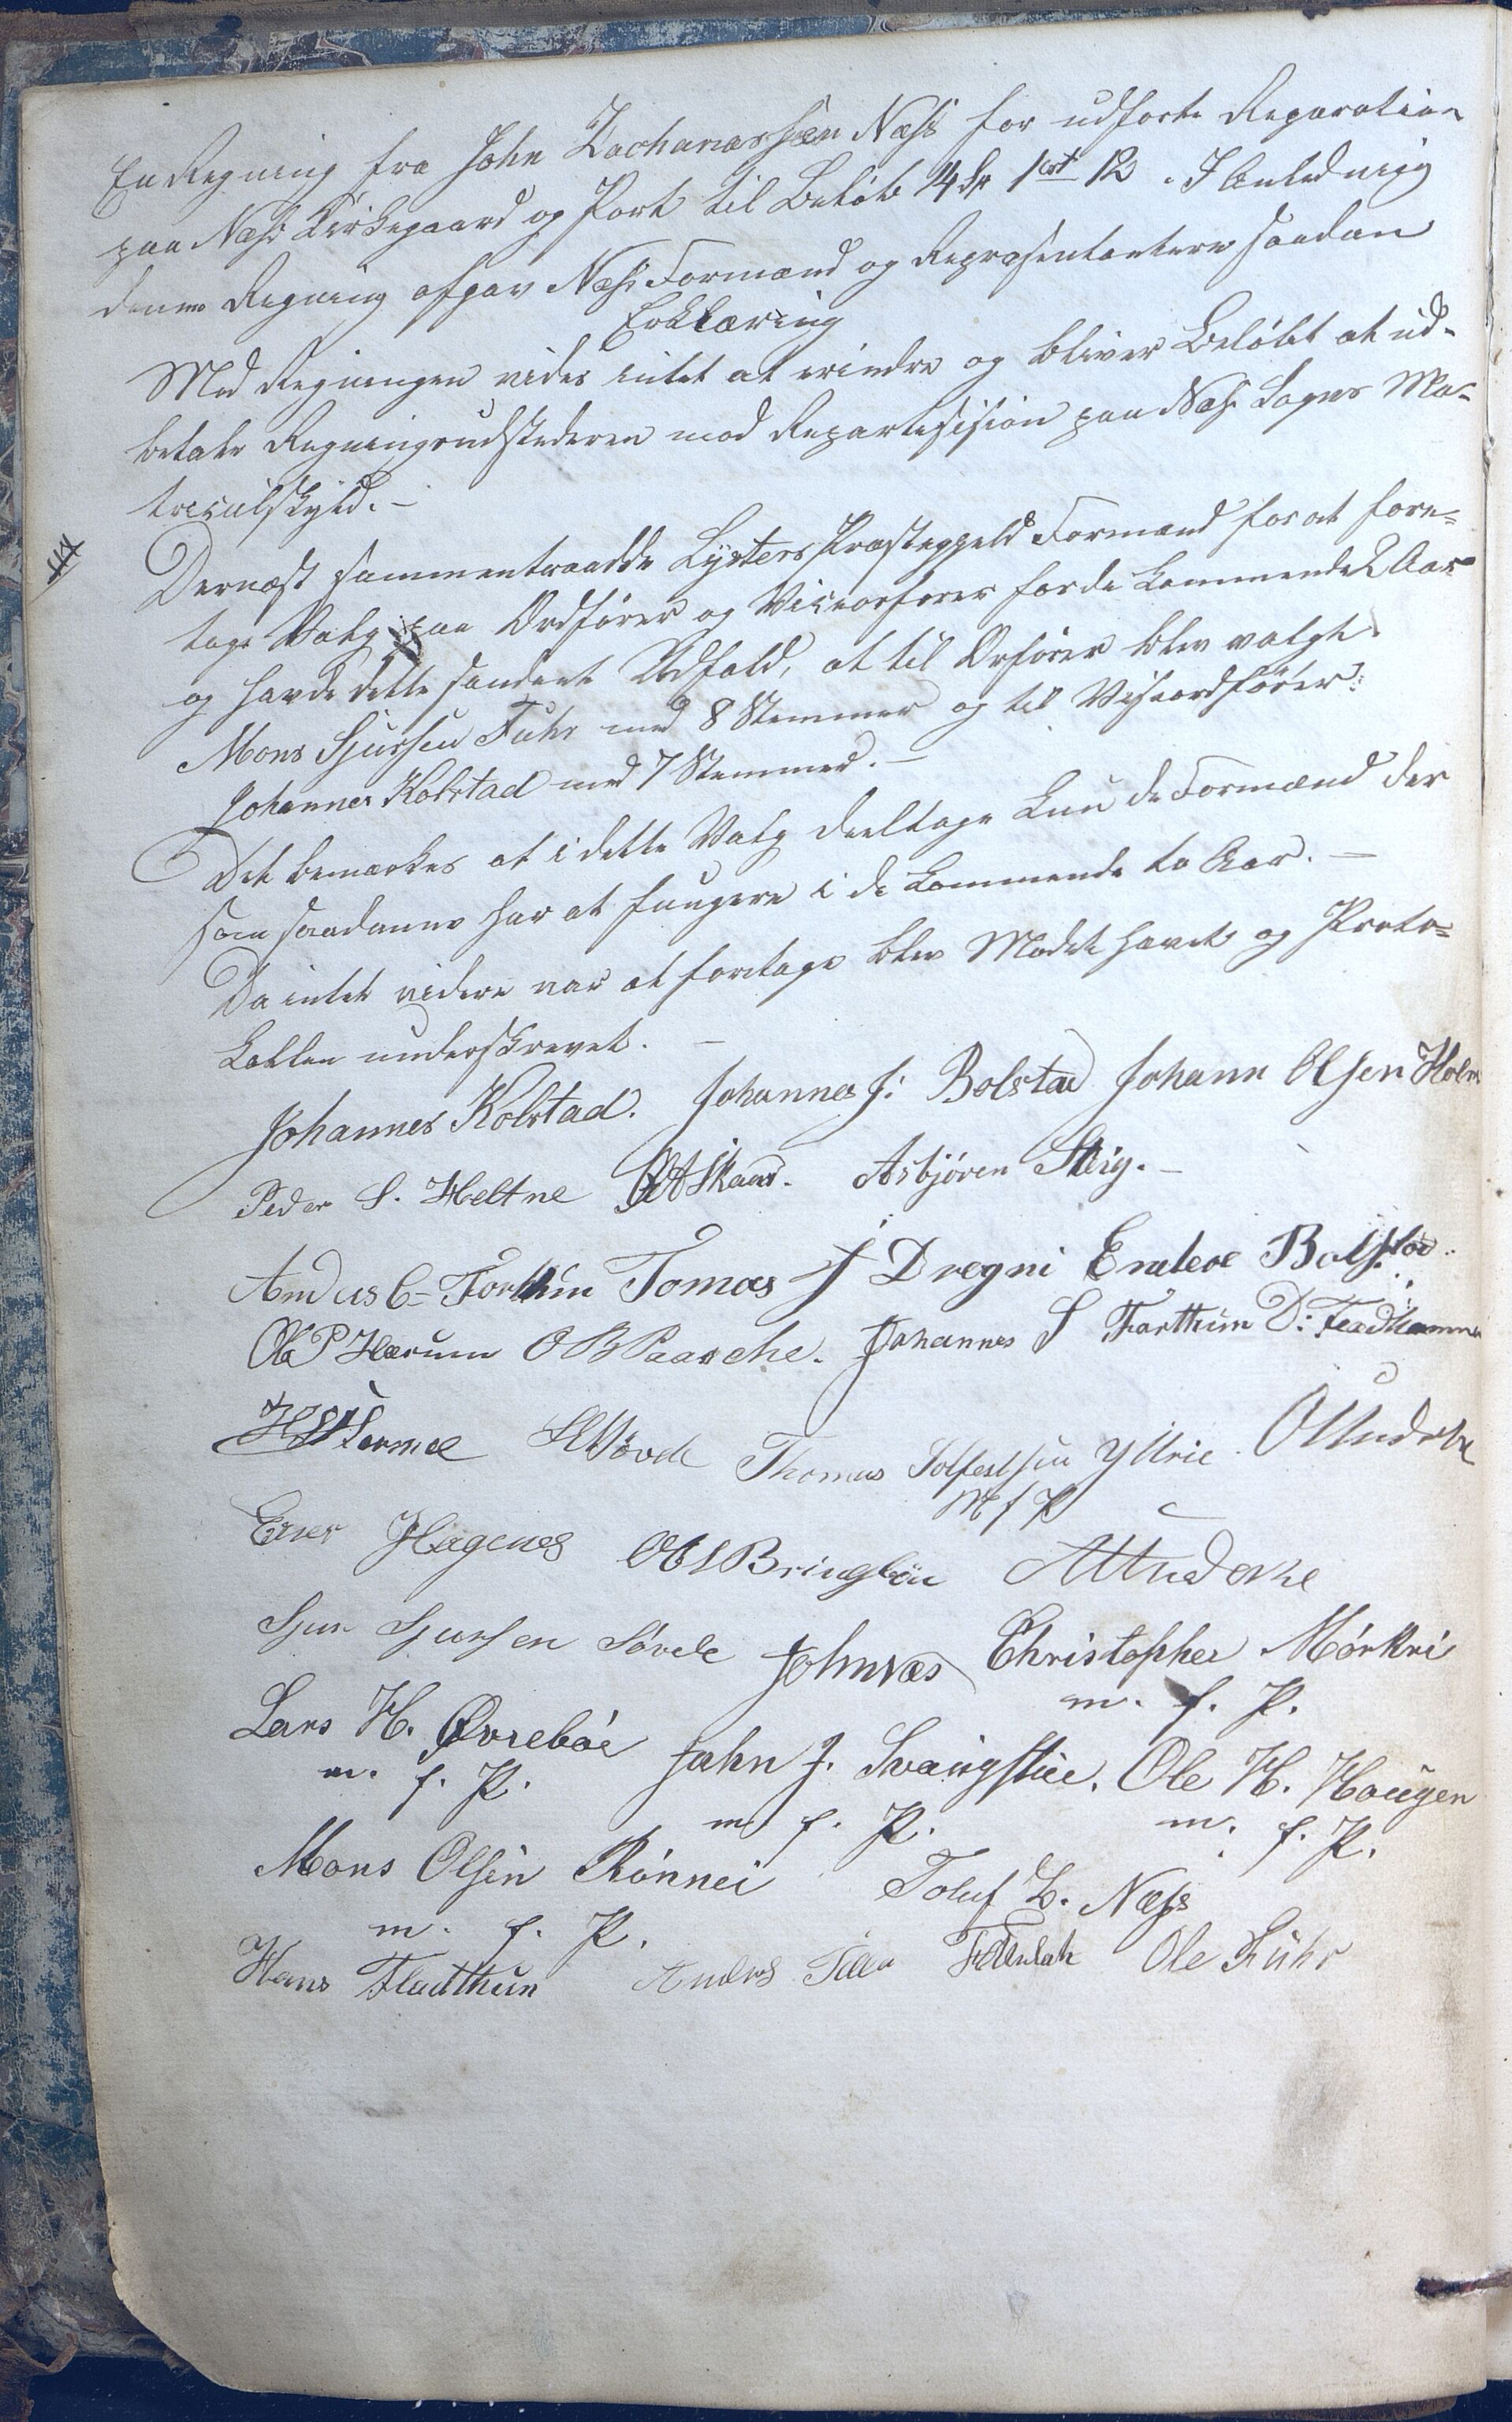 En Regning fra John Zachariassen Næss for udførte Reparation
paa Næss Kirkegaard og Port til Beløb 14 Sp 1 ort 12. I Anledning
denne Regning afgav Næss Formænd og Repræsentantere saadan
Erklæring
Mod Regningen vides intet at erindre og bliver Beløbet at ud-
betale Regningsudstederen mod Repartisision paa Næss Sogns Ma-
triculskyld. -
Dernæst sammentraadde Lysters Præstegjeld Formænd for at fore-
tage Valg paa Ordfører og Viceorfører for de kommende 2 Aar
og havde dette saadant Udfald, at til Orfører blev valgt
Mons Sjursen Fuhr med 8 Stemmer og til Viseordfører:
Johannes Kolstad med 7 Stemmer. -
Det bemærkes at i dette Valg deeltage kun de Formænd der
som saadanne har at fungere i de kommende to Aar. -
Da intet videre var at foretage blev Mødet hævet og Proto-
kollen underskrevet. -
Johannes Kolstad. Johannes J: Bolstad Johann Olsen Holm
Peder S. Heltne Skaar. Asbjøren Steig. -
Andus C- Forthun Tomas J Dregni Endere Bolstad
Ole P Hærum O B Paasche. Johannes S Forthun D: Fladhamme
Thomas Solfestsen Yttrie
M f P
Hagenes Ole Bringebøn
Sjur Sjursen Søvde John Næs Christopher Mørkri
m. f. P.
Lars H. Øvrebøe John J. Svangstue. Ole H. Haugen
m. f. P. m f. P. m. f. P.
Mons Olsen Rønnei Toluf Z. Næss
m. f. P.
Hans Fladthun Anders Ole Fuhr